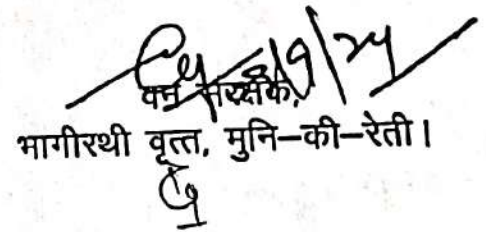 वन संरक्षक,
भागीरथी वृत्त, मुनि–की–रेती।